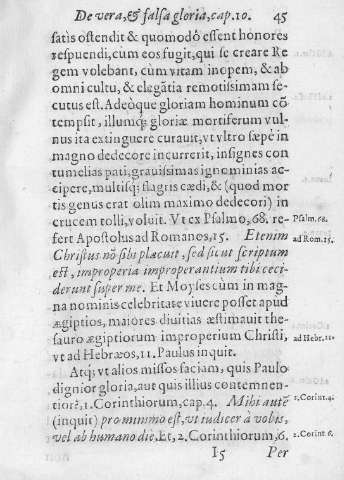 De vera, & falsa gloria, cap. 10. 45
satis ostendit & quomodó essent honores
respuendi, cum eos fugit, qui se creare Re
gem volebant, cum vitam inopem, & ab
omni cultu, & elegātia remotissimam se-
cutus est. Adeòque gloriam hominum cō
tempsit, illumq; gloriæ mortiferum vul-
nus ita extinguere curauit, vt vltro sæpè in
magno dedecore incurrerit, insignes con
tumelias pati, grauissimas ignominias ac-
cipere, multisq; flagris cædi, & (quod mor
tis genus erat olim maximo dedecori) in
crucem tolli, voluit. Vt ex Psalmo, 68. re- Psalm. 68.
fert Apostolus ad Romanos, 15. Etenim ad Rom. 15.
Christus nō sibi placuit, sed sicut scriptum
est, improperia improperantium tibi ceci
derunt super me. Et Moyses cùm in mag-
na nominis celebritate viuere posset apud
ægiptios, maiores diuitias æstimauit the-
sauro ægiptiorum improperium Christi, ad Hebr. 11.
vt ad Hebræos, 11. Paulus inquit.
Atq; vt alios missos faciam, quis Paulo
dignior gloria, aut quis illius contemnen-
tior?, 1. Corinthiorum, cap. 4. Mihi autē 1. Corint. 4.
(inquit) pro minimo est, vt iudicer à vobis,
vel ab humano die. Et, 2. Corinthiorum, 6. 2. Corint. 6.
I5 Per